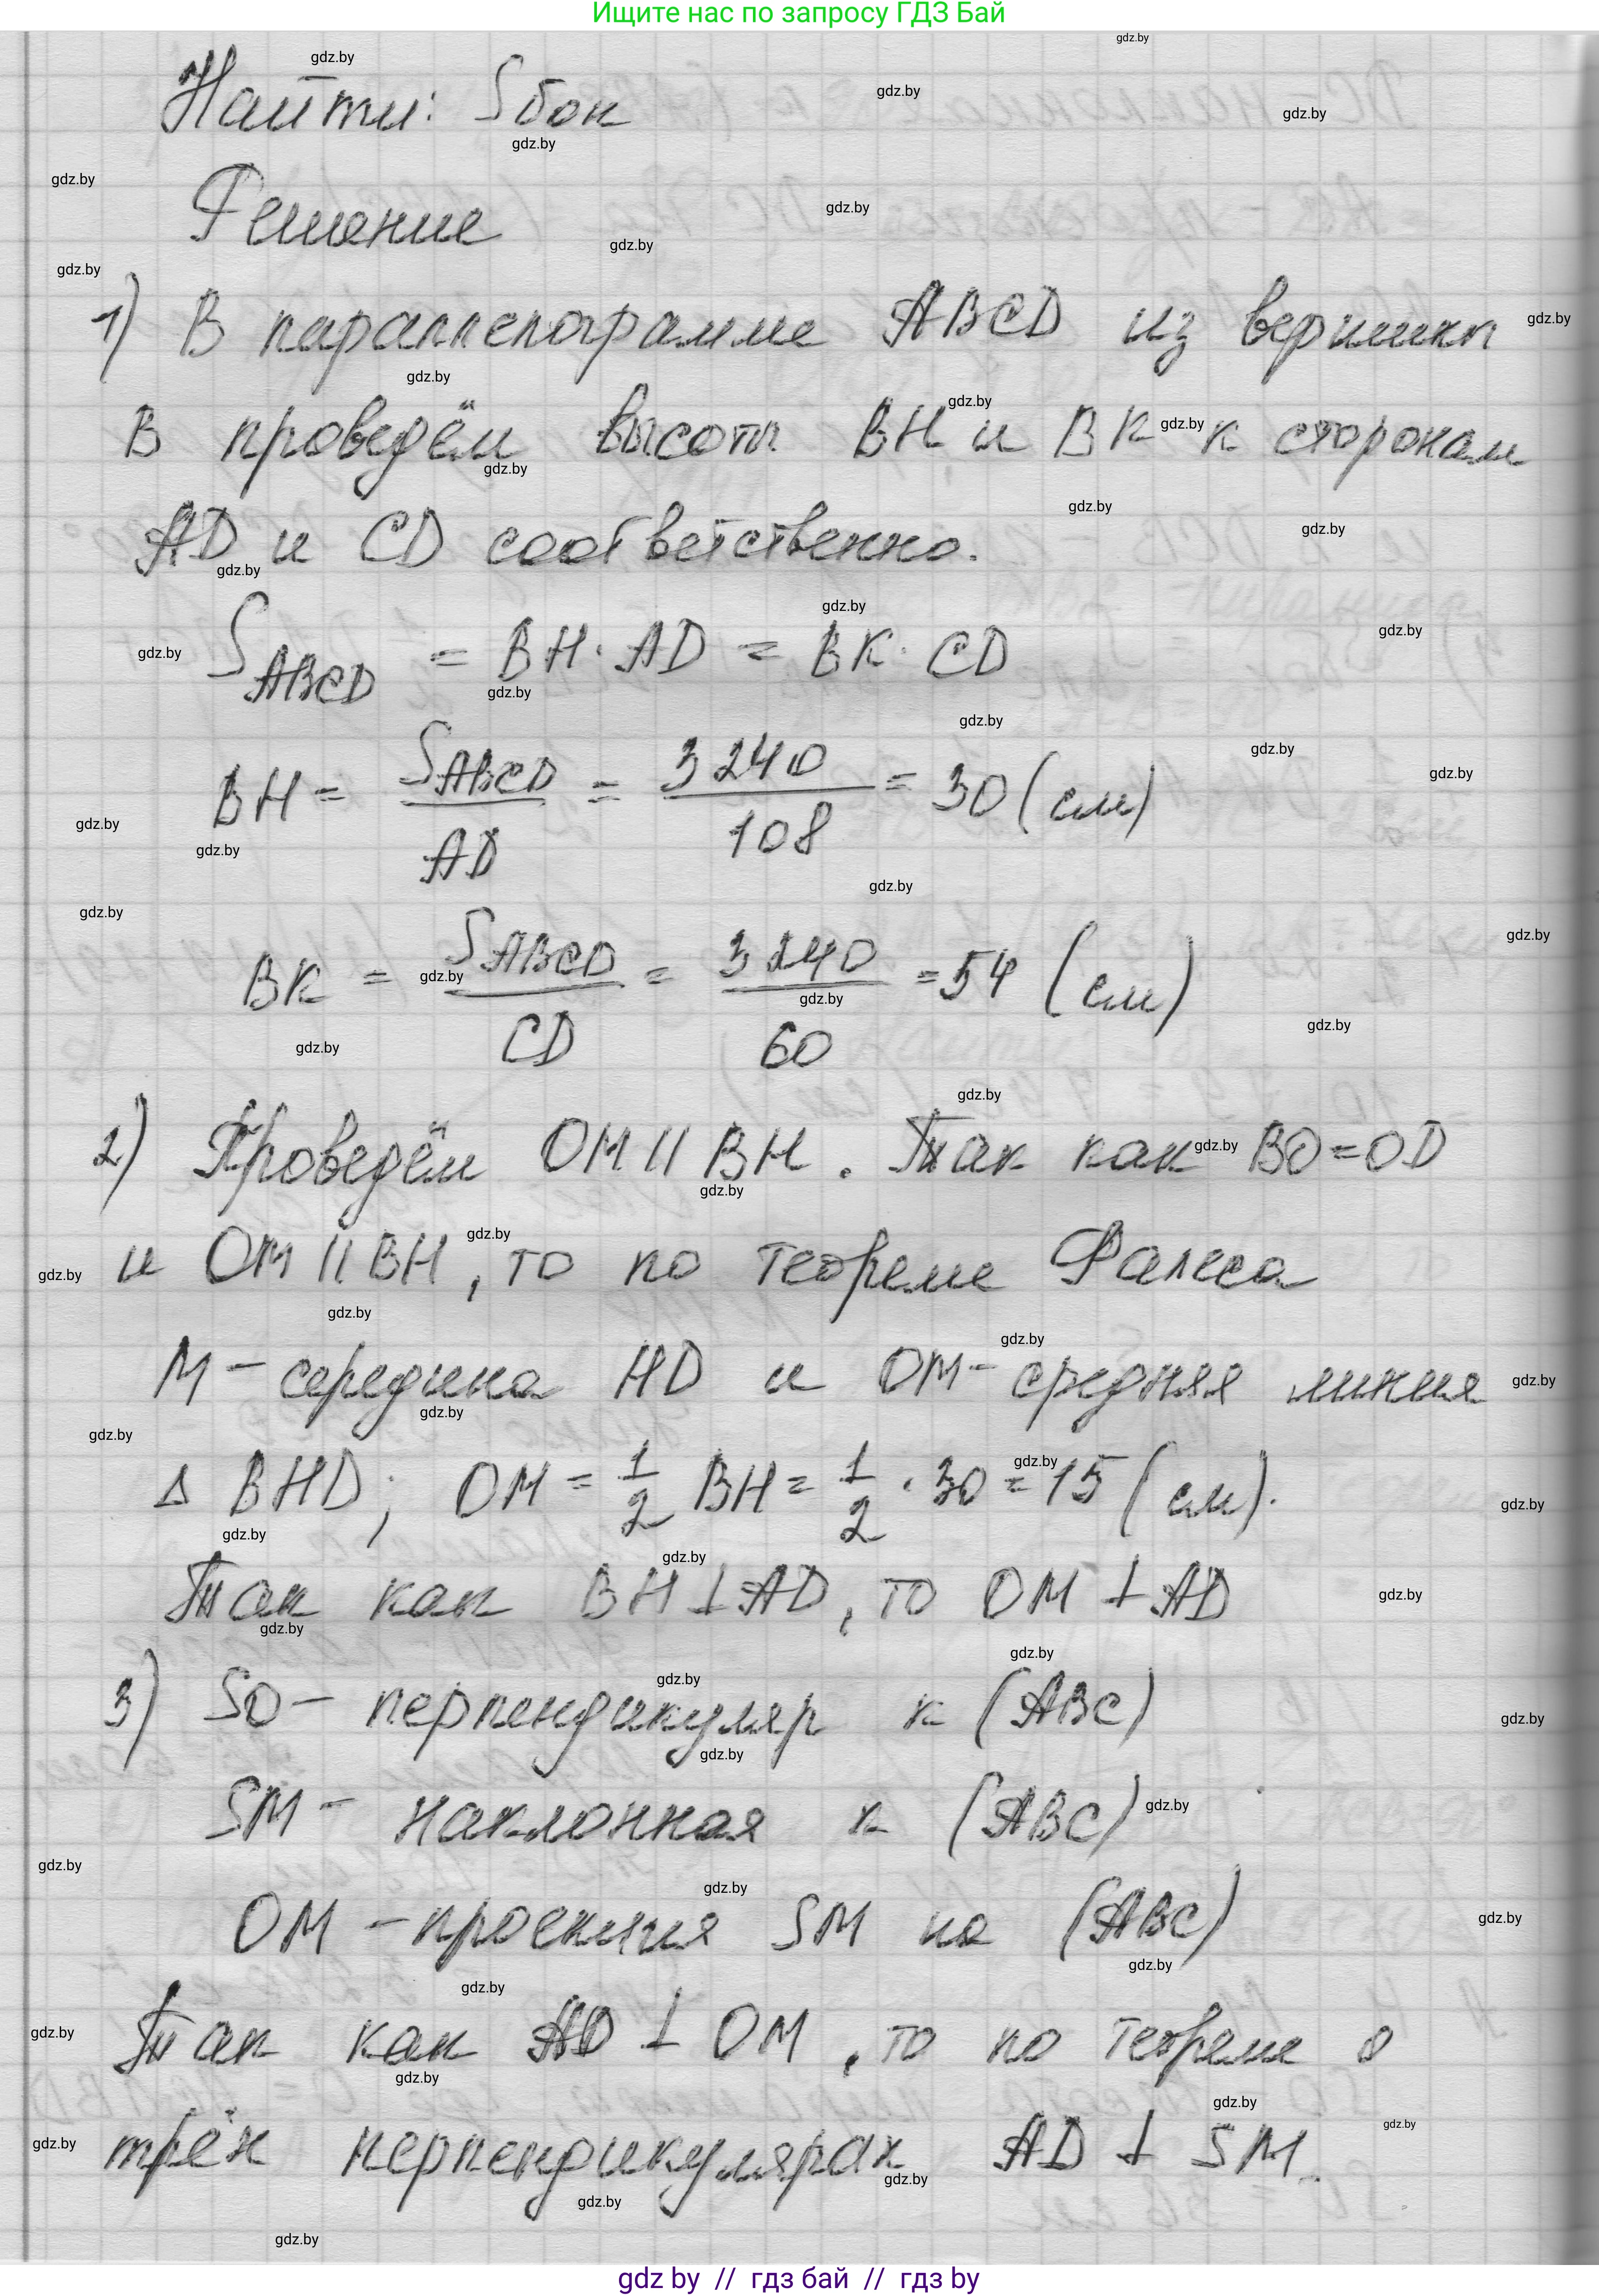 Ищите нас по запросу ГДЗ Бай
Найти: Sбок
Решение
1) В параллелограмме ABCD из вершины
B проведём высоты BH и BK к сторонам
AD и CD соответственно.
S_ABCD = BH · AD = BK · CD
BH = S_ABCD / AD = 3240 / 108 = 30 (см)
BK = S_ABCD / CD = 3240 / 60 = 54 (см)
2) Проведём OM || BH. Так как BO = OD
и OM || BH, то по теореме Фалеса
M – середина HD и OM – средняя линия
Δ BHD; OM = 1/2 BH = 1/2 · 30 = 15 (см).
Так как BH ⊥ AD, то OM ⊥ AD
3) SO – перпендикуляр к (ABC)
SM – наклонная к (ABC)
OM – проекция SM на (ABC)
Так как AD ⊥ OM, то по теореме о
трёх перпендикулярах AD ⊥ SM.
gdz by // гдз бай // гдз by